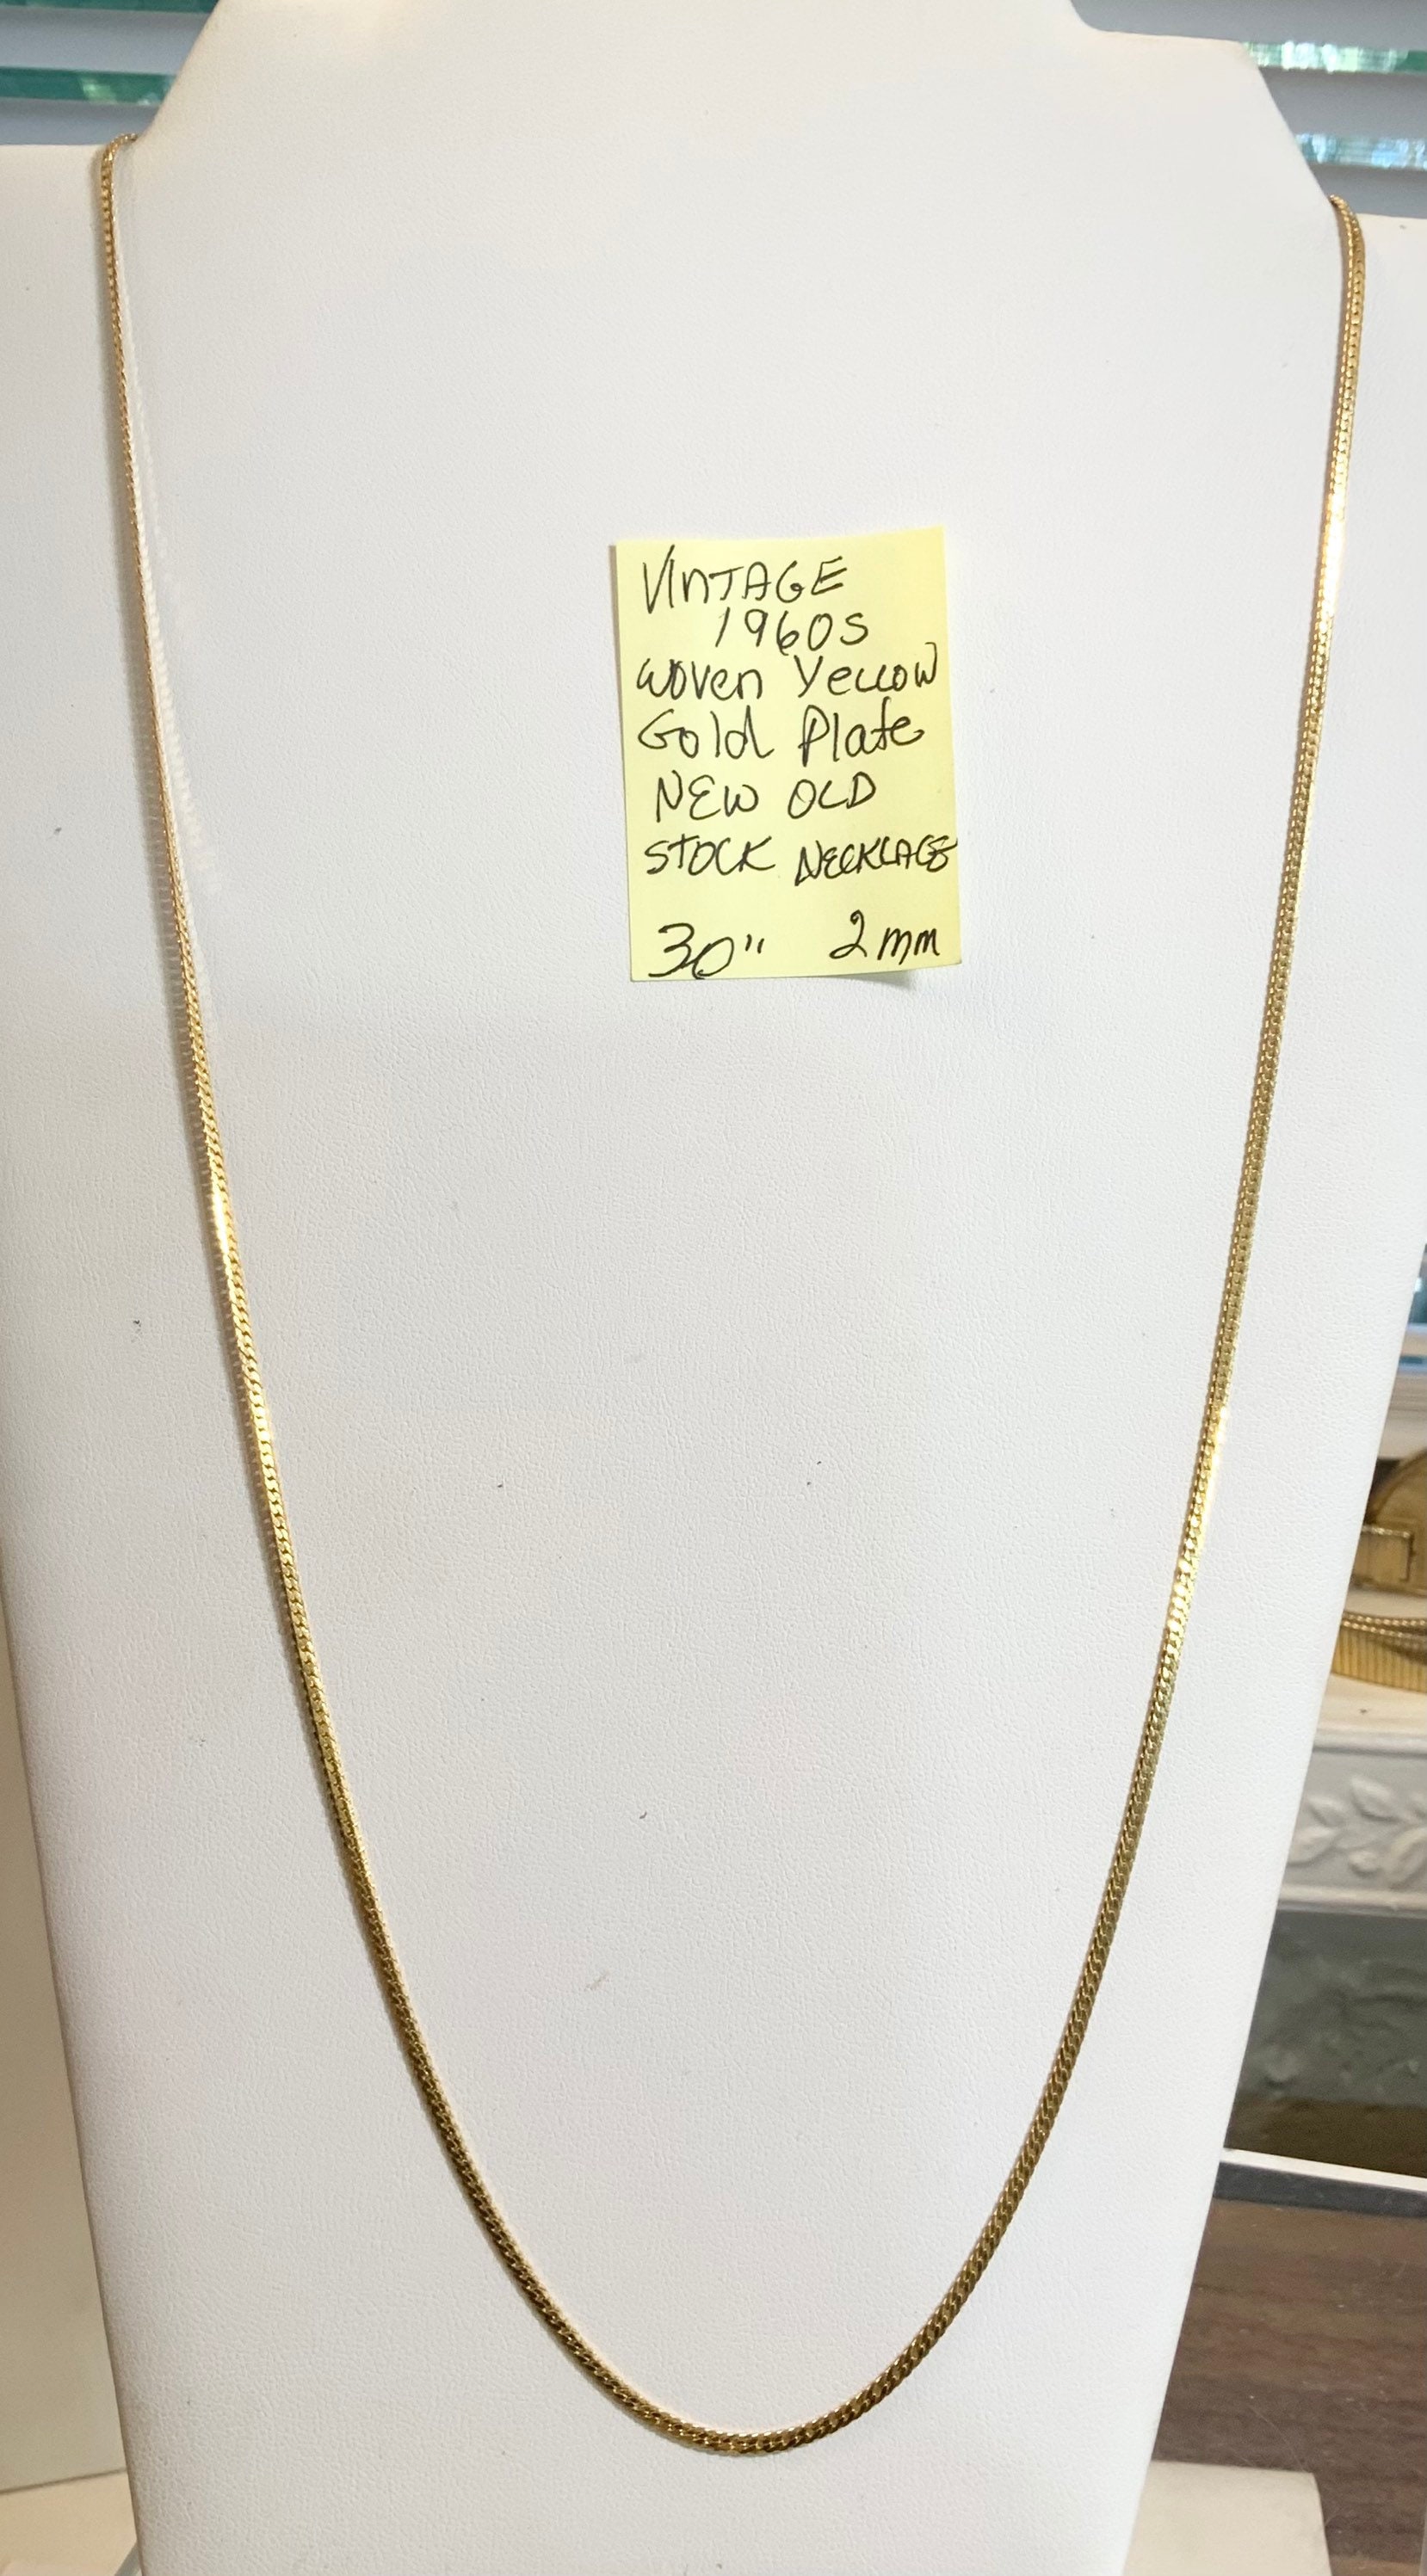 VINTAGE
1960S
woven Yellow
Gold Plate
NEW OLD
STOCK NECKLACE
30" 2mm